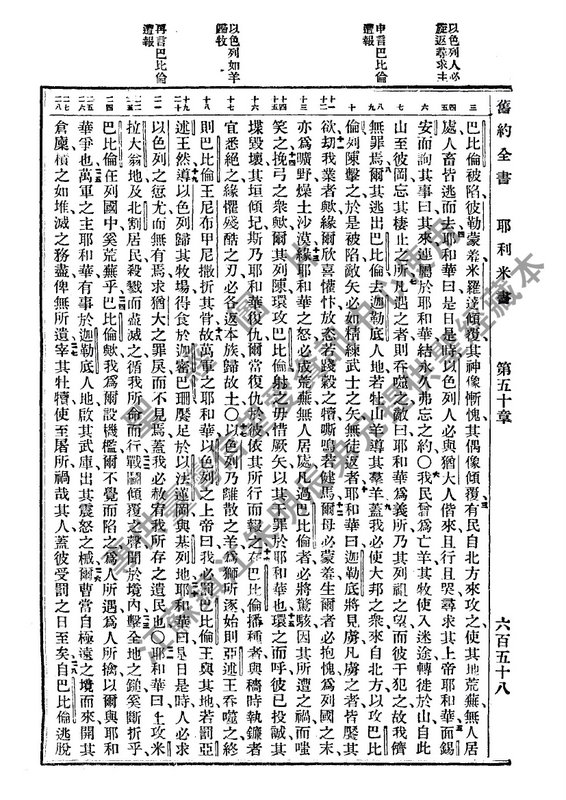 以色列人必
旋返尋求主
申言巴比倫
遭報
以色列如羊
歸牧
再言巴比倫
遭報
舊約全書 耶利米書 第五十章 六百五十八
巴比倫被陷彼勒蒙羞米羅達傾覆其神像慚愧其偶像傾覆有民自北方來攻之使其地荒蕪無人居
處人畜皆逃而去耶和華曰是日是時以色列人必與猶大人偕來且行且哭尋求其上帝耶和華面錫
安而詢其事曰其來連屬於耶和華結永久弗忘之約○我民曾為亡羊其牧使入迷途轉徙於山自此
山至彼岡忘其棲止之所凡遇之者則吞噬之敵曰耶和華為義所乃其列祖之望而彼干犯之故我儕
無罪焉爾其逃出巴比倫去迦勒底人地若牡山羊導其羣羊蓋我必使大邦之衆來自北方以攻巴比
倫列陳擊之於是被陷敵矢必如精練武士之矢無徒返者耶和華曰迦勒底將見虜凡虜之者皆饜其
欲劫我業者歟緣爾欣喜懽忭放恣若踐穀之犢嘶鳴若健馬爾母必蒙羞生爾者必抱愧為列國之末
亦為曠野燥土沙漠緣耶和華之怒必成荒蕪無人居處凡過巴比倫者必將驚駭因其所遭之禍而嗤
笑之挽弓之衆歟爾其列陳環攻巴比倫射之毋惜厥矢以其獲罪於耶和華也環之而呼彼已投誠其
堞毀壞其垣傾圮斯乃耶和華復仇爾當復仇於彼依其所行而報之在巴比倫播種者與穡時執鐮者
宜悉絕之緣懼殘酷之刃必各返本族歸故土○以色列乃離散之羊為獅所逐始則亞述王吞噬之終
則巴比倫王尼布甲尼撒折其骨故萬軍之耶和華以色列之上帝曰我必罰巴比倫王與其地若罰亞
述王然導以色列歸其牧場得食於迦密巴珊饜足於以法蓮岡與基列地耶和華曰是日是時人必求
以色列之愆尤而無有焉求猶大之罪戾而不見焉蓋我必赦宥我所存之遺民也○耶和華曰上攻米
拉大翁地及北割居民殺戮而盡滅之循我所命而行戰鬭傾覆之聲聞於境內擊全地之鎚奚斷折乎
巴比倫任列國中奚荒蕪乎巴比倫歟我為爾設機檻爾不覺而陷之為人所遇為人所捨以爾與耶和
華爭也萬軍之主耶和華有事於迦勒底人地啟其武庫出其震怒之械爾曹當自極遠之境而來開其
倉廩積之如堆滅之務盡俾無所遺宰其牡犢使至屠所禍哉其人蓋彼受罰之日至矣自巴比倫逃脫